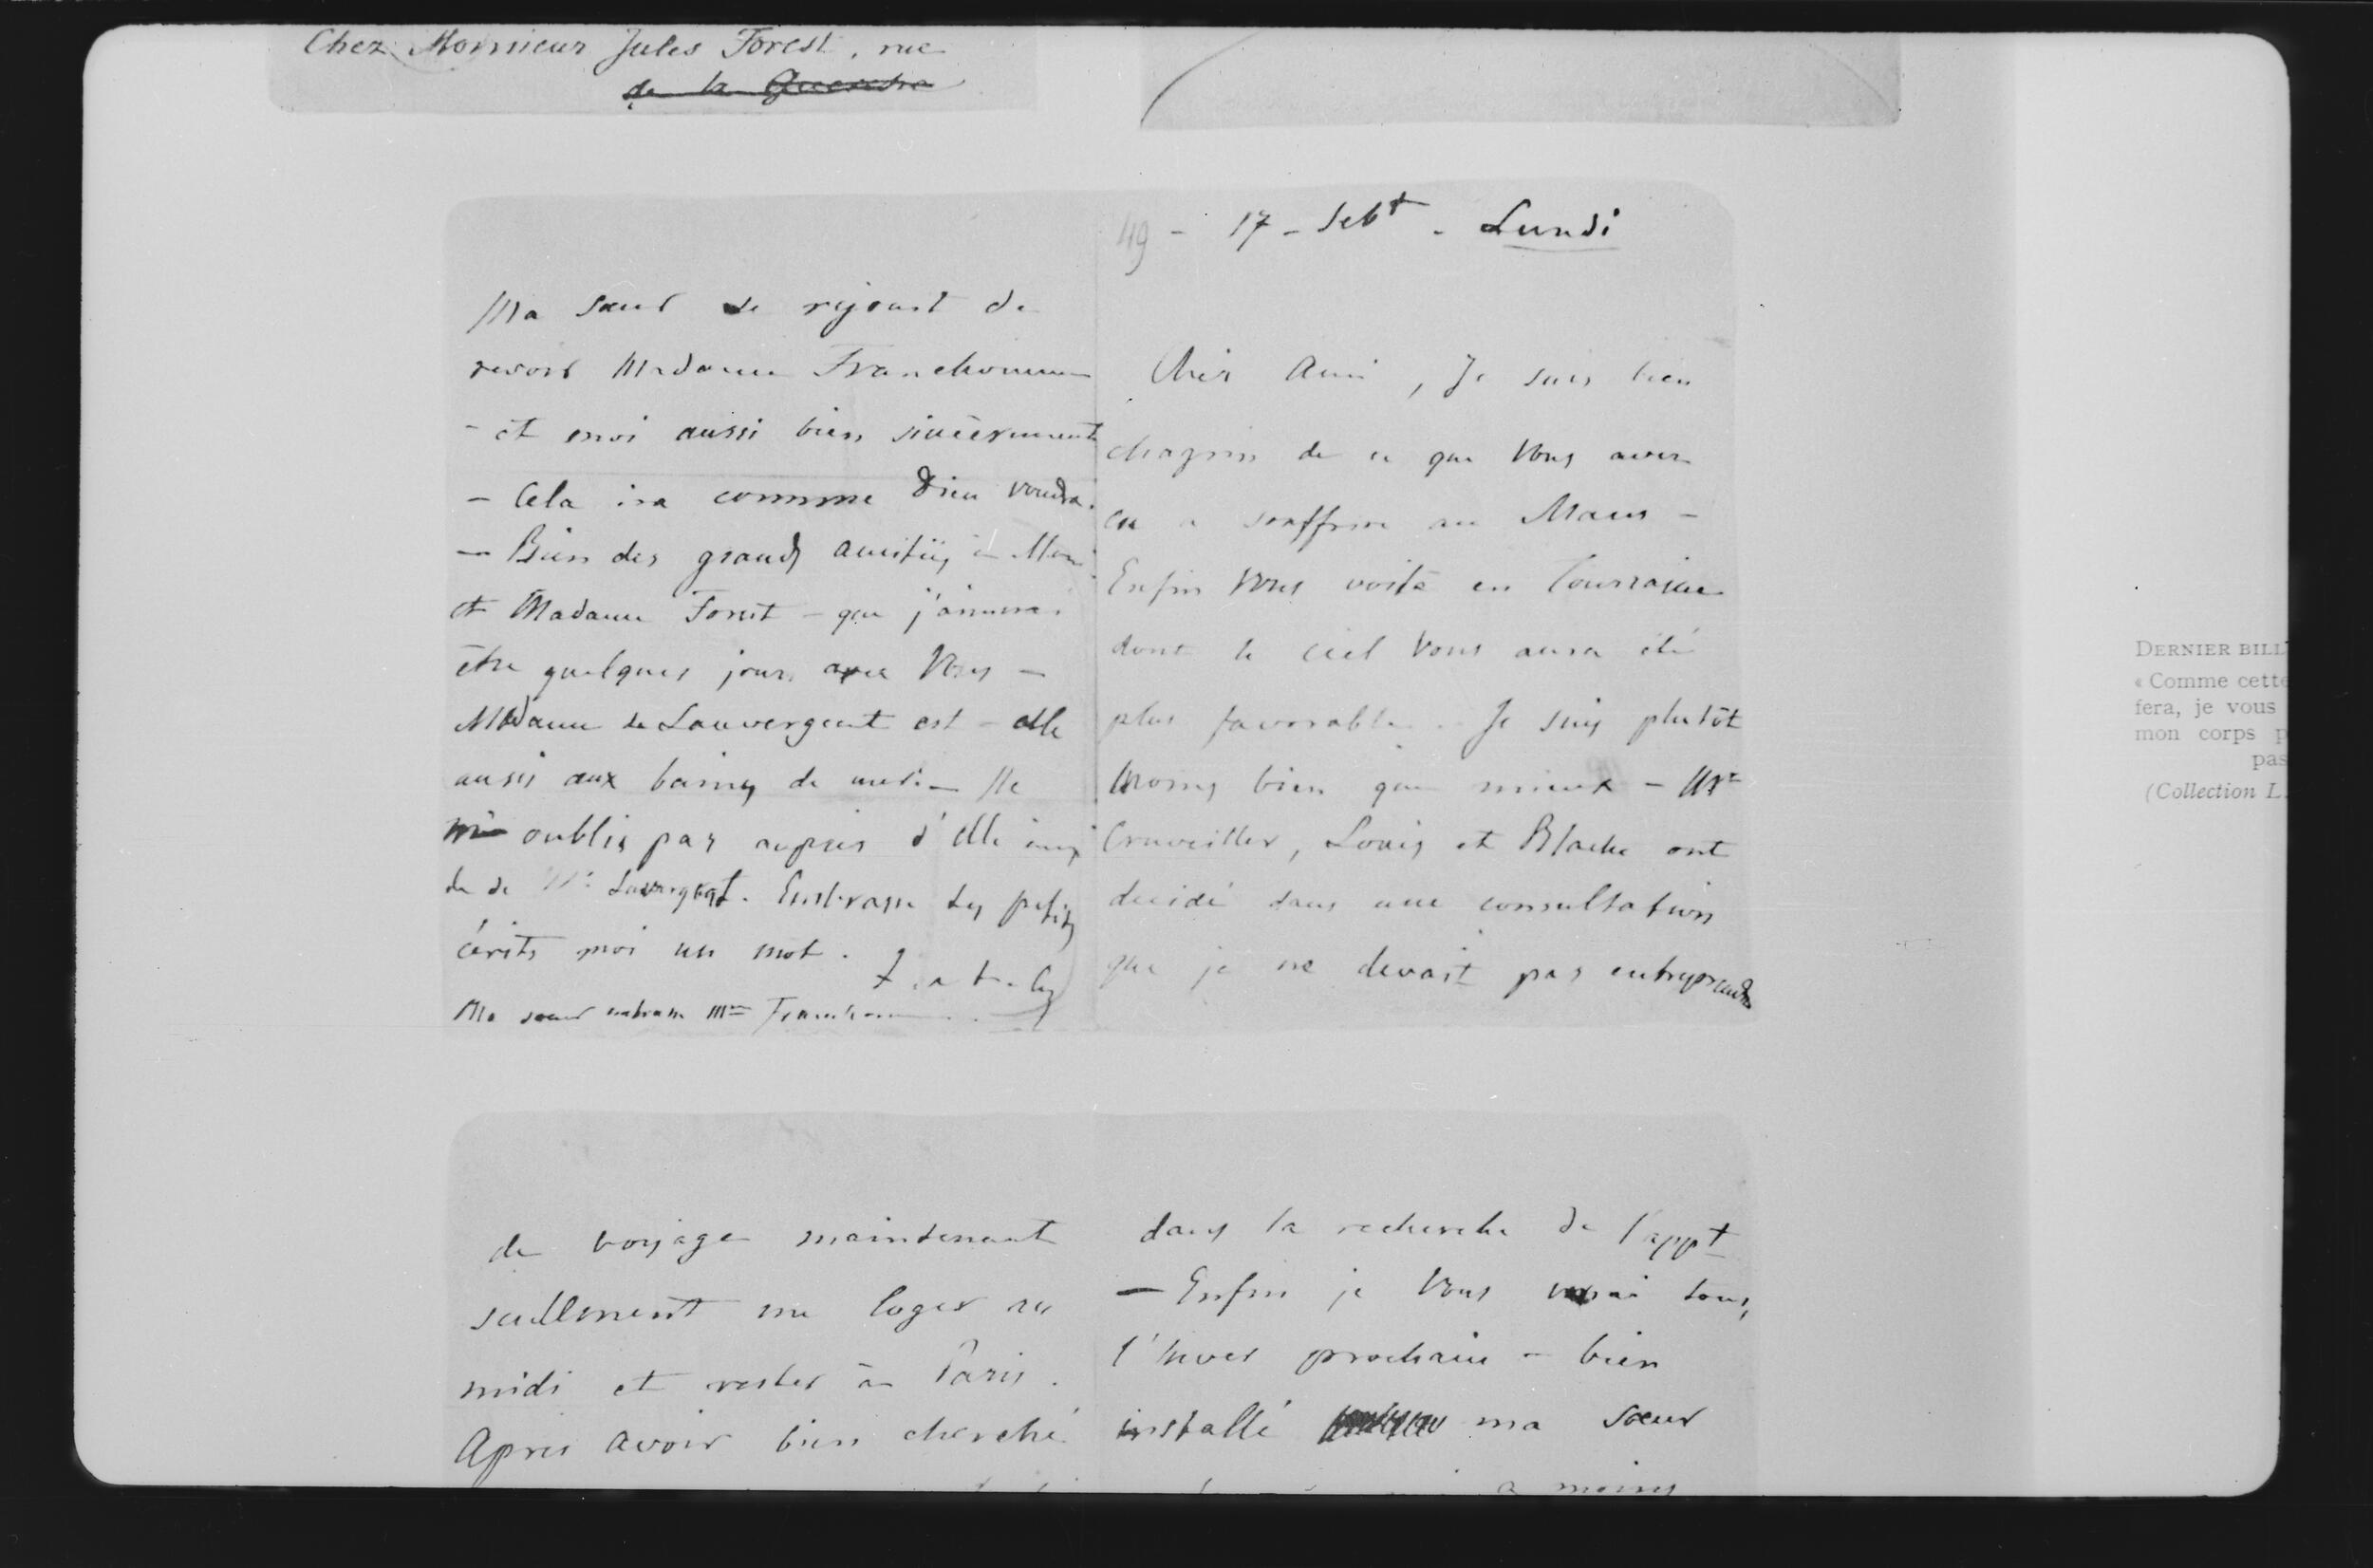 Chez Monsieur Jules Forest, rue
de la
49 - 17 - Sebt. - Lundi
Ma sœur se rejouit de
revoir Madame Franchomme
- et moi aussi bien sincèrement
- Cela ira comme Dieu voudra.
- Bien des grands amitiés à
et Madame Forest - que j'aimerai
être quelques jours avec Vous -
Madame de Lauvergeat est - elle
aussi aux bains de mer. - Ne
oublis pas aupres d'elle
de de Mr Lauvergeat. Embrasse tes petits
écrits moi un mot.
Ma sœur embrasse Mme Franchomme
Cher Ami, Je suis bien
chagrin de ce que Vous avez
eu a souffrire au Mans -
Enfin Vous voilà en Tourraine
dont le ciel Vous aura été
plus favorable. Je suis plutôt
moins bien que mieux - Mrs
Cruveiller, Louis et Blache ont
decidé dans une consultation
que je ne devait pas entreprendre
de voyage maintenant
seullement me loger au
midi et rester à Paris.
Apres avoir bien cherché
dans la recherche de l'appt
- Enfin je Vous verrai tous
l'hiver prochain - bien
installé ma sœur
a moins
DERNIER BILL
« Comme cette
fera, je vous
mon corps p
pas
(Collection L.